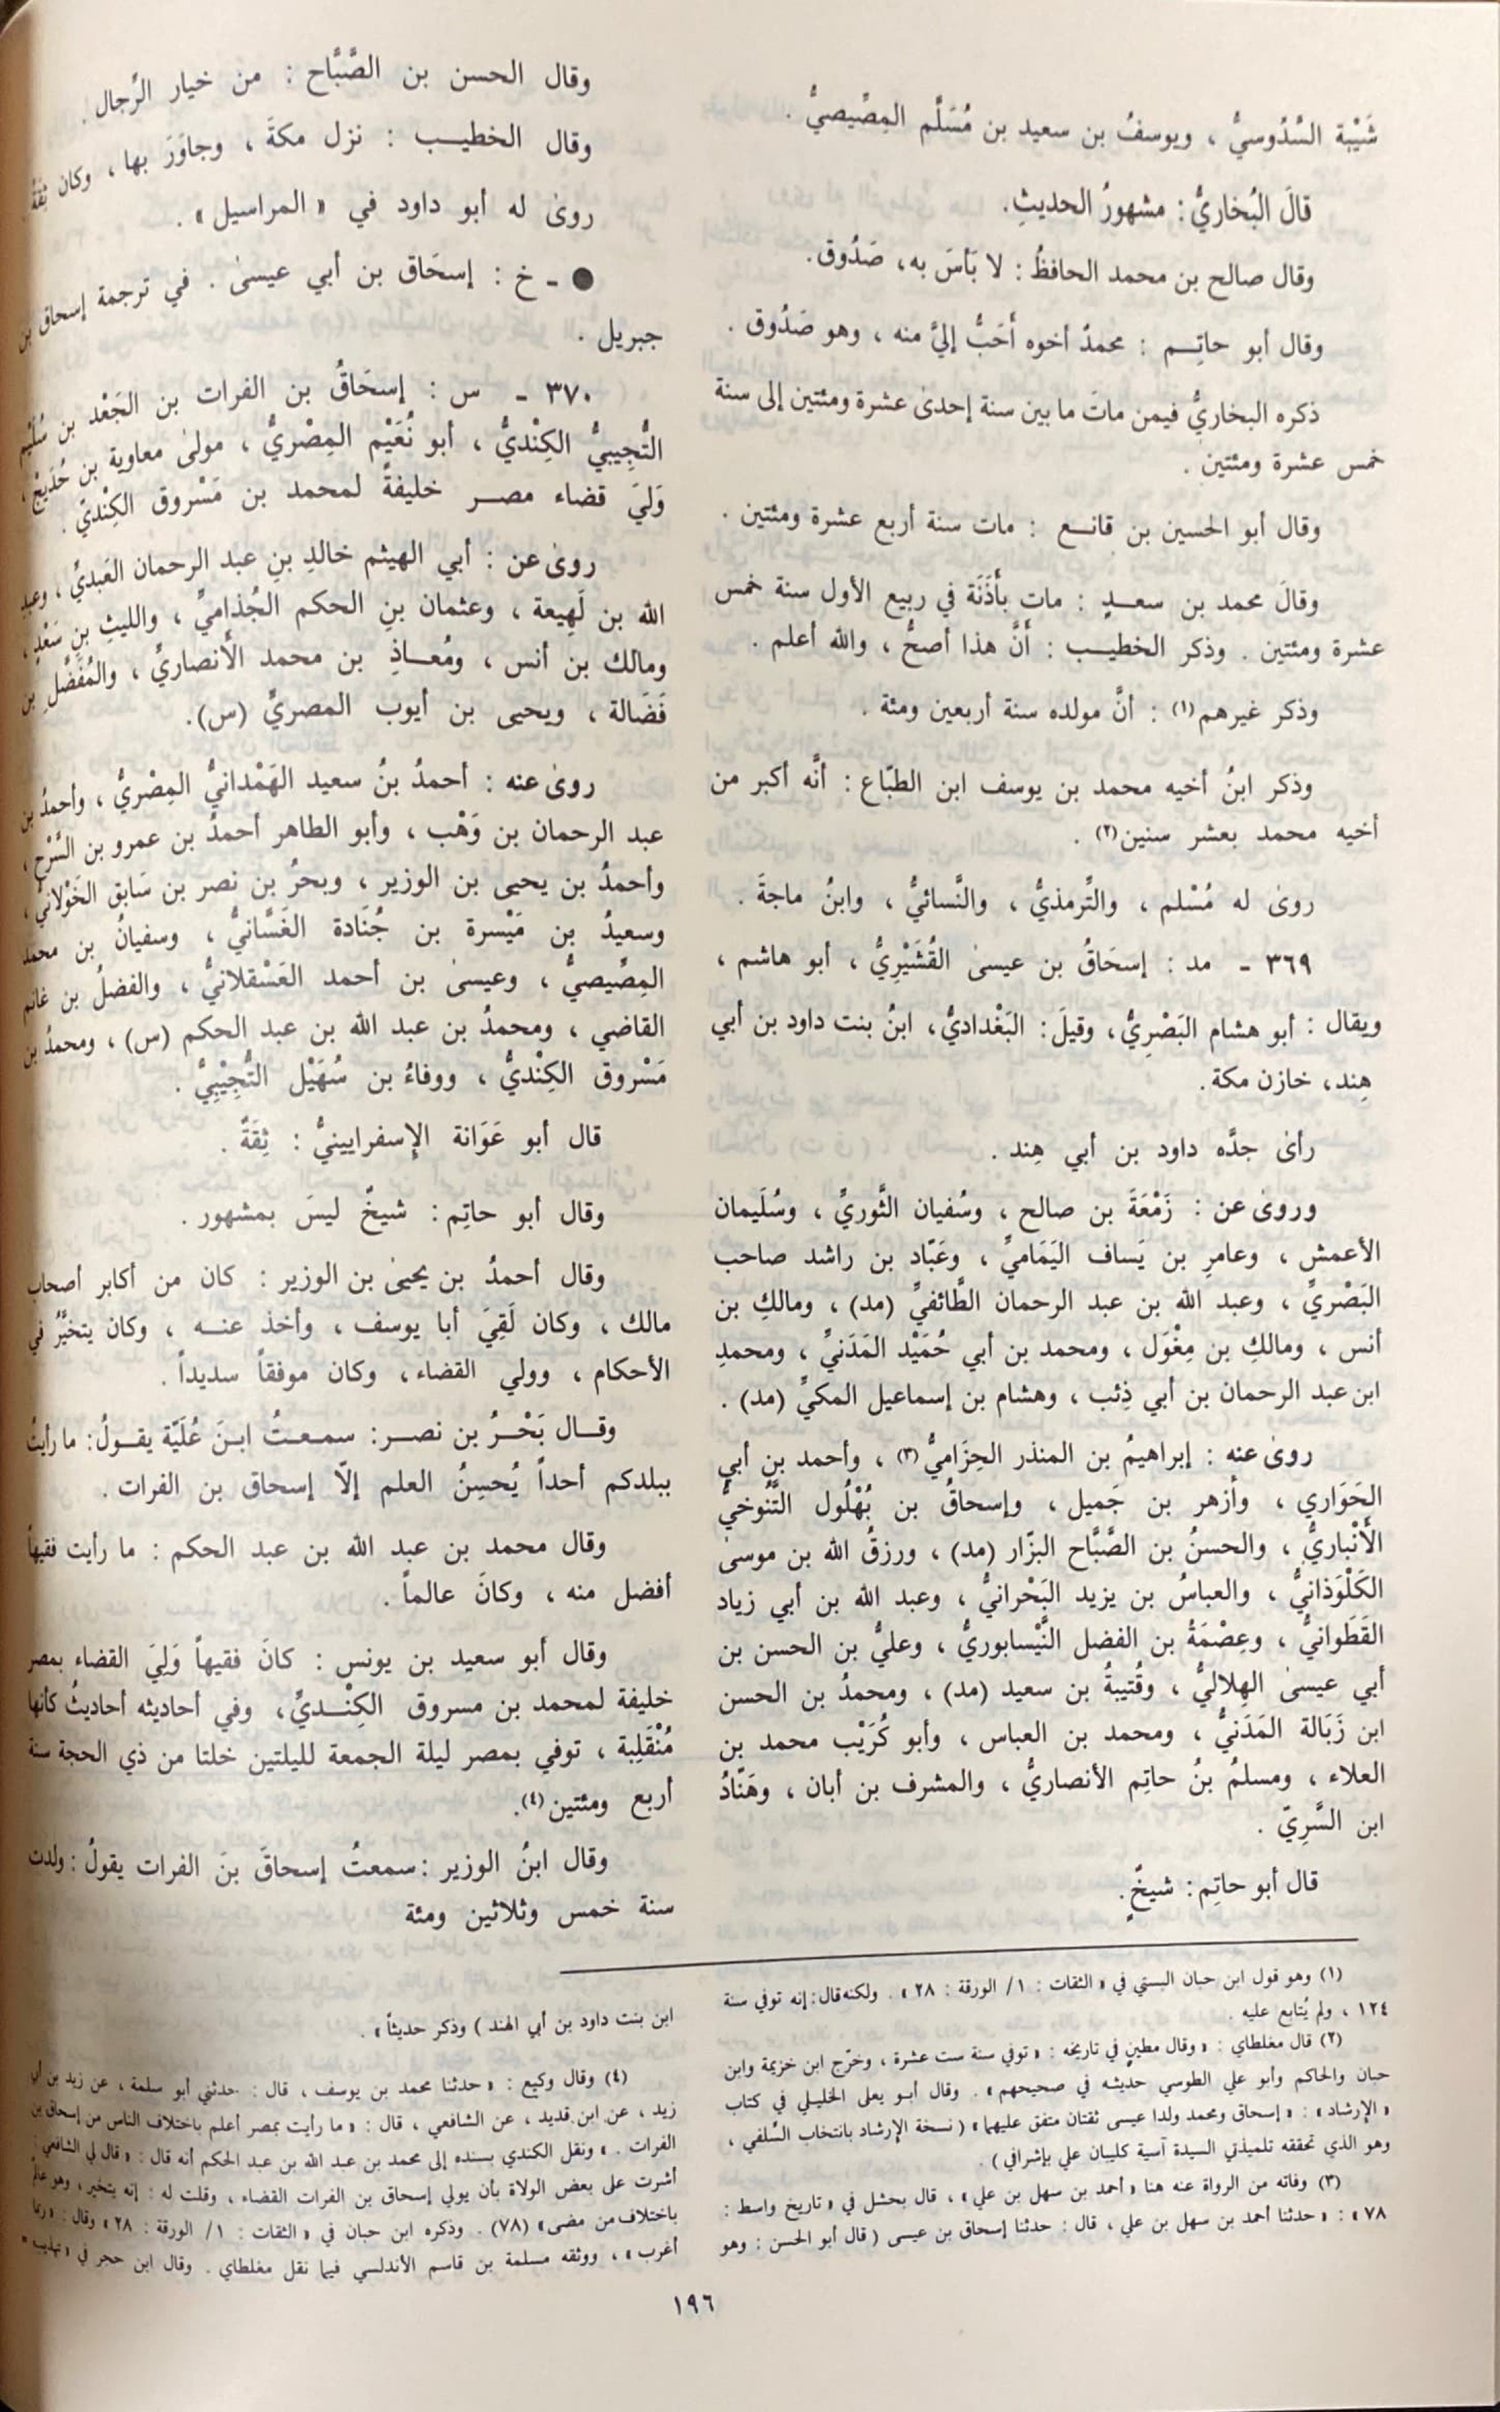 شَيْبة السَّدُوسيُّ ، ويوسفُ بن سعيد بن مُسَلَّم المِصِّيصيُّ .
قالَ البُخاريُّ : مشهورُ الحديثِ.
وقال صالح بن محمد الحافظُ : لا بَأسَ به، صَدُوق.
وقال أبو حاتِم : محمدٌ أخوه أَحَبُّ إليَّ منه ، وهو صَدُوق .
ذكره البخاريُّ فيمن ماتَ ما بين سنة إحدىٰ عشرة ومئتين إلى سنة
خمس عشرة ومئتين .
وقال أبو الحسين بن قانع : مات سنة أربع عشرة ومئتين .
وقالَ محمد بن سعدٍ : مات بأَذَنَة في ربيع الأول سنة خمس
عشرة ومئتين . وذكر الخطيب : أنَّ هذا أصحُّ ، والله أعلم .
وذكر غيرهم (١) : أنَّ مولده سنة أربعين ومئة .
وذكر ابنُ أخيه محمد بن يوسف ابن الطبّاع : أنَّه أكبر من
أخيه محمد بعشر سنين (٢) .
روىٰ له مُسْلم ، والتِّرمذيُّ ، والنَّسائيُّ ، وابنُ ماجةَ .
٣٦٩ - مد : إسحَاقُ بن عيسىٰ القُشَيْرِيُّ ، أبو هاشم ،
ويقال : أبو هشام البَصْرِيُّ، وقيلَ : البَغْداديُّ، ابنُ بنت داود بن أبي
هِند، خازن مكة .
رأىٰ جدَّه داود بن أبي هِند .
وروىٰ عن : زَمْعَةَ بن صالح ، وسُفيان الثَّوريِّ ، وسُلَيمان
الأعمش ، وعامرِ بن يَساف اليَمَاميِّ ، وعَبّاد بن راشد صاحب
البَصْريِّ ، وعبد الله بن عبد الرحمان الطَّائفيِّ (مد) ، ومالكِ بن
أنس ، ومالكِ بن مِغْوَل ، ومحمد بن أبي حُمَيْد المَدَنيِّ ، ومحمدِ
ابن عبد الرحمان بن أبي ذِئب ، وهشام بن إسماعيل المكيِّ (مد) .
روىٰ عنه : إبراهيمُ بن المنذر الحِزَاميُّ (٣) ، وأحمد بن أبي
الحَوَاري ، وأزهر بن جَميل ، وإسحاقُ بن بُهْلُول التَّنُوخيُّ
الأَنْباريُّ ، والحسنُ بن الصَّبَّاح البزّار (مد) ، ورزقُ الله بن موسىٰ
الكَلْوَذانيُّ ، والعباسُ بن يزيد البَحْرانيُّ ، وعبد الله بن أبي زياد
القَطَوانيُّ ، وعِصْمَةُ بن الفضل النَّيْسابوريُّ ، وعليُّ بن الحسن بن
أبي عيسىٰ الهِلاليُّ ، وقُتيبةُ بن سعيد (مد) ، ومحمدُ بن الحسن
ابن زَبَالة المَدَنيُّ ، ومحمد بن العباس ، وأبو كُرَيْب محمد بن
العلاء ، ومسلمُ بنُ حاتِم الأنصاريُّ ، والمشرف بن أبان ، وهَنّادُ
ابن السَّرِيّ .
قال أبو حاتِم : شيخٌ.
وقال الحسن بن الصَّبَّاح : من خيار الرِّجال .
وقال الخطيب : نزل مكةَ ، وجاوَرَ بها ، وكان ثِقَةً.
روىٰ له أبو داود في « المراسيل » .
● - خ : إسحَاق بن أبي عيسىٰ . في ترجمة إسحاق بن
جبريل .
٣٧٠ - س : إسحَاقُ بن الفرات بن الجَعْد بن سُلَيْم
التُّجِيبيُّ الكِنْديُّ ، أبو نُعَيْم المِصْريُّ ، مولىٰ معاوية بن حُدَيجْ ،
وَليَ قضاء مصر خليفةً لمحمد بن مَسْروق الكِنْديّ .
روىٰ عن : أبي الهيثم خالدِ بنِ عبد الرحمان العَبديُّ ، وعبدِ
الله بن لَهِيعة ، وعثمان بنِ الحكم الجُذاميِّ ، والليثِ بنِ سَعْدٍ ،
ومالك بن أنس ، ومُعاذِ بن محمد الأَنصاريِّ ، والمُفَضَّلِ بن
فَضَالة ، ويحيى بن أيوب المصريِّ (س).
روىٰ عنه : أحمدُ بنُ سعيد الهَمْدانيُّ المِصْريُّ ، وأحمدُ بن
عبد الرحمان بن وَهْب ، وأبو الطاهر أحمدُ بن عمرو بن السَّرْح ،
وأحمدُ بن يحيى بن الوزير ، وبحرُ بن نصر بن سَابق الخَوْلانيُّ ،
وسعيدُ بن مَيْسرة بن جُنَادة الغَسَّانيُّ ، وسفيانُ بن محمد
المِصِّيصيُّ ، وعيسىٰ بن أحمد العَسْقلانيُّ ، والفضلُ بن غانم
القاضي ، ومحمدُ بن عبد الله بن عبد الحكم (س) ، ومحمدُ بن
مَسْروق الكِنْديُّ ، ووفاءُ بن سُهَيْل التُّجِيْبيُّ .
قال أبو عَوَانة الإسفرايينيُّ : ثِقَةٌ .
وقال أبو حاتِم : شيخٌ ليسَ بمشهور .
وقال أحمدُ بن يحيىٰ بن الوزير : كان من أكابر أصحاب
مالك ، وكان لَقِيَ أبا يوسف ، وأخذ عنه ، وكان يتخيَّرُ في
الأحكام ، وولي القضاء ، وكان موفقاً سديداً .
وقال بَحْرُ بن نصر : سمعتُ ابنَ عُلَيّة يقولُ : ما رأيتُ
ببلدكم أحداً يُحسِنُ العلم إلّا إسحاق بن الفرات .
وقال محمد بن عبد الله بن عبد الحكم : ما رأيت فقيهاً
أفضل منه ، وكانَ عالماً .
وقال أبو سعيد بن يونس : كانَ فقيهاً وَلِيَ القضاء بمصر
خليفة لمحمد بن مسروق الكِنْديِّ ، وفي أحاديثه أحاديثُ كأنها
مُنْقَلِبة ، توفي بمصر ليلة الجمعة لليلتين خلتا من ذي الحجة سنة
أربع ومئتين (٤).
وقال ابنُ الوزير : سمعتُ إسحاقَ بنَ الفرات يقولُ : ولدت
سنة خمس وثلاثين ومئة
(١) وهو قول ابن حبان البستي في « الثقات : ١/ الورقة : ٢٨ » . ولكنه قال : إنه توفي سنة
١٢٤ ، ولم يُتابع عليه .
(٢) قال مغلطاي : « وقال مطين في تاريخه : « توفي سنة ست عشرة ، وخرّج ابن خزيمة وابن
حبان والحاكم وأبو علي الطوسي حديثه في صحيحهم » . وقال أبو يعلى الخليلي في كتاب
« الإرشاد » : « إسحاق ومحمد ولدا عيسى ثقتان متفق عليهما » ( نسخة الإرشاد بانتخاب السِّلفي ،
وهو الذي تحققه تلميذتي السيدة آسية كليبان علي بإشرافي ) .
(٣) وفاته من الرواة عنه هنا « أحمد بن سهل بن علي » ، قال بحشل في « تاريخ واسط :
٧٨ » : « حدثنا أحمد بن سهل بن علي ، قال : حدثنا إسحاق بن عيسى ( قال أبو الحسن : وهو
ابن بنت داود بن أبي الهند ) وذكر حديثاً » .
(٤) وقال وكيع : « حدثنا محمد بن يوسف ، قال : حدثني أبو سلمة ، عن زيد بن أبي
زيد ، عن ابن قديد ، عن الشافعي ، قال : « ما رأيت بمصر أعلم باختلاف الناس من إسحاق بن
الفرات . » ونقل الكندي بسنده إلى محمد بن عبد الله بن عبد الحكم أنه قال : « قال لي الشافعي :
أشرت على بعض الولاة بأن يولي إسحاق بن الفرات القضاء ، وقلت له : إنه يتخير ، وهو عالمٌ
باختلاف من مضى » (٧٨) . وذكره ابن حبان في « الثقات : ١/ الورقة : ٢٨ » وقال : « ربما
أغرب » ، ووثقه مسلمة بن قاسم الأندلسي فيما نقل مغلطاي . وقال ابن حجر في « تهذيب »
١٩٦